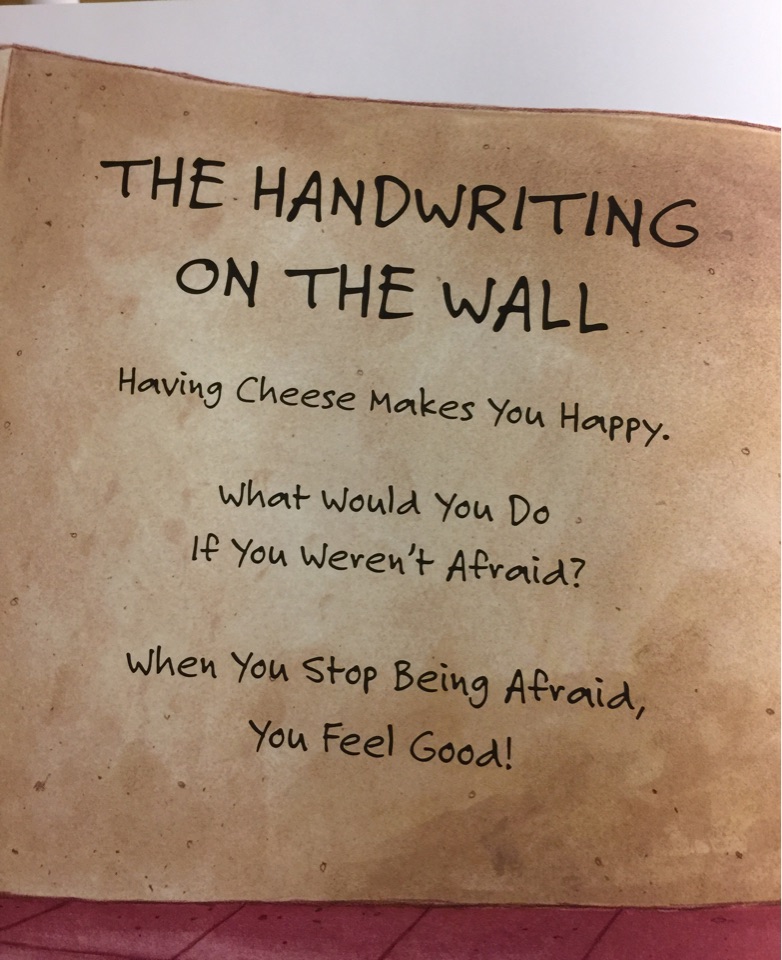 THE HANDWRITING
ON THE WALL
Having Cheese Makes You Happy.
What Would You Do
If You Weren't Afraid?
When You Stop Being Afraid,
You Feel Good!